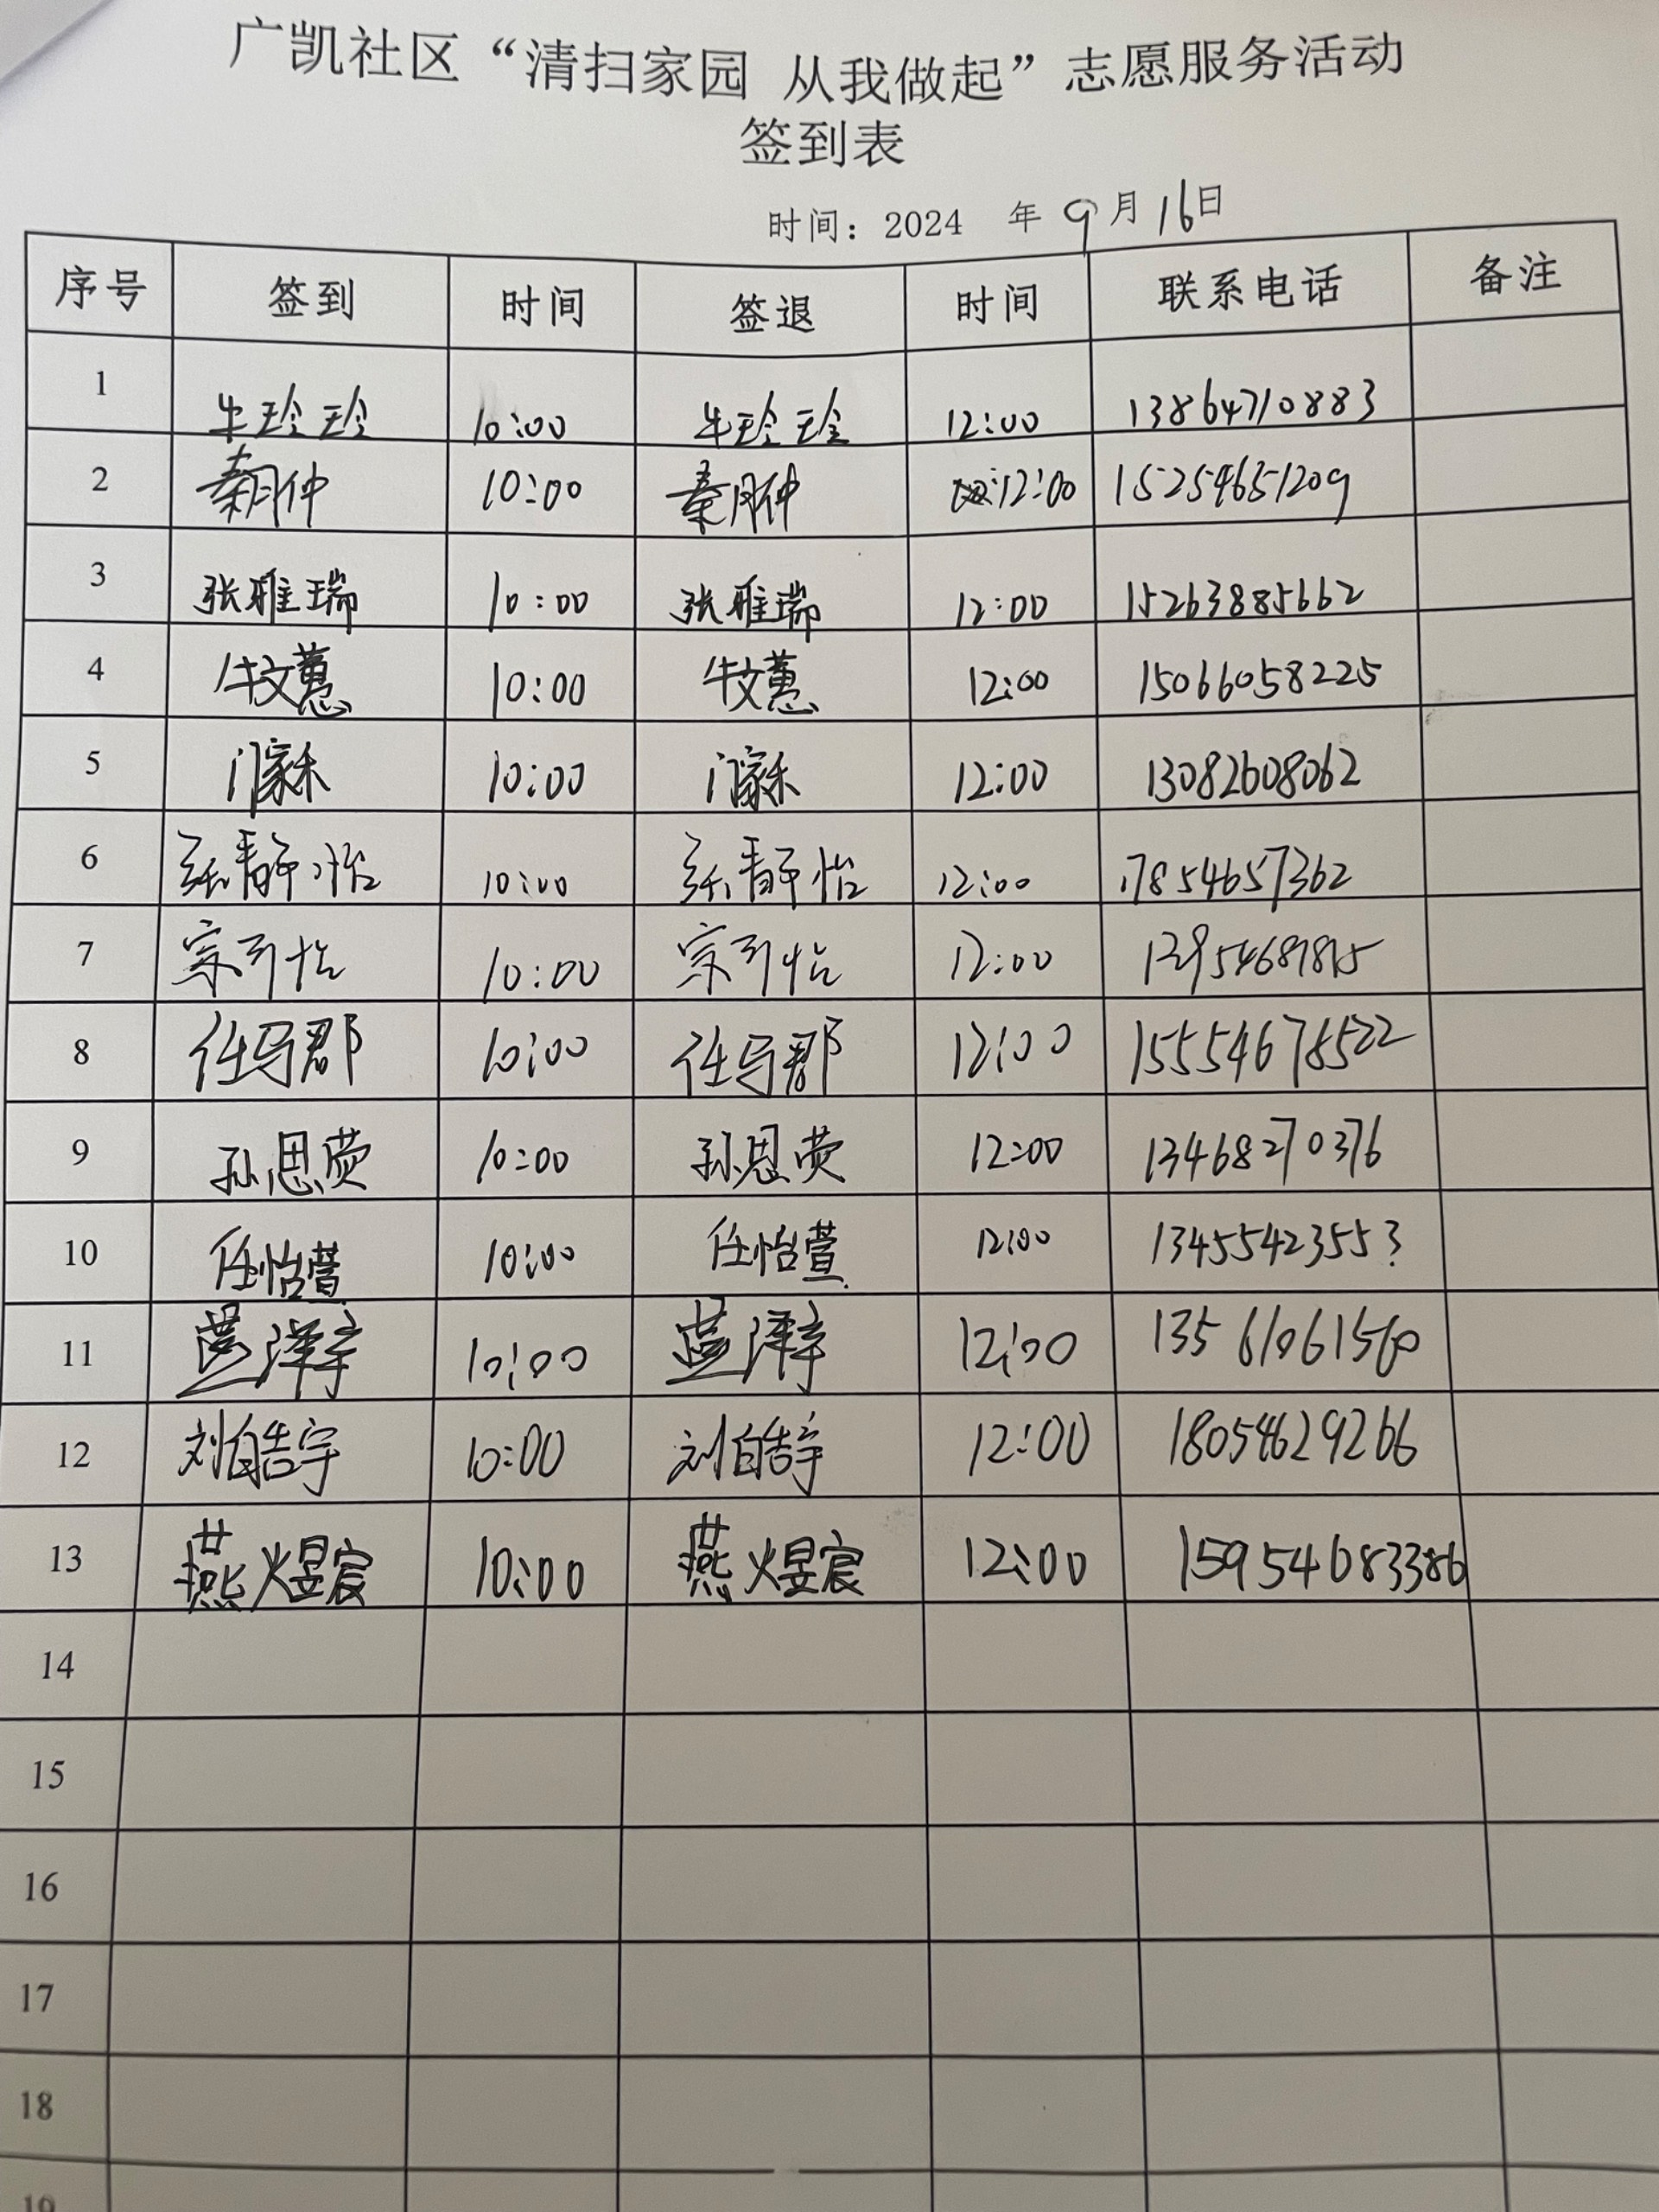 广凯社区“清扫家园 从我做起”志愿服务活动
签到表
时间：2024 年 9 月 16 日
序号 签到 时间 签退 时间 联系电话 备注
1 牛玲玲 10:00 牛玲玲 12:00 13864710883
2 秦月仲 10:00 秦月仲 12:00 15254651209
3 张雅瑞 10:00 张雅瑞 12:00 15263885662
4 牛文蕙 10:00 牛文蕙 12:00 15066058225
5 门家禾 10:00 门家禾 12:00 13082608062
6 张静怡 10:00 张静怡 12:00 17854657362
7 宗可怡 10:00 宗可怡 12:00
8 任马郡 10:00 任马郡 12:00 15554678522
9 孙思荧 10:00 孙思荧 12:00 13468270376
10 任怡萱 10:00 任怡萱 12:00 13455423553
11 10:00 12:00 13561061560
12 刘皓宇 10:00 刘皓宇 12:00 18054629266
13 燕煜宸 10:00 燕煜宸 12:00 15954683386
14
15
16
17
18
19